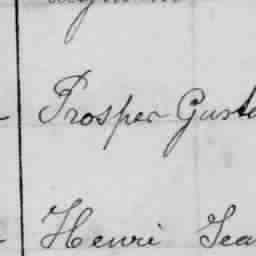 Prosper Gusta
Henri Jea